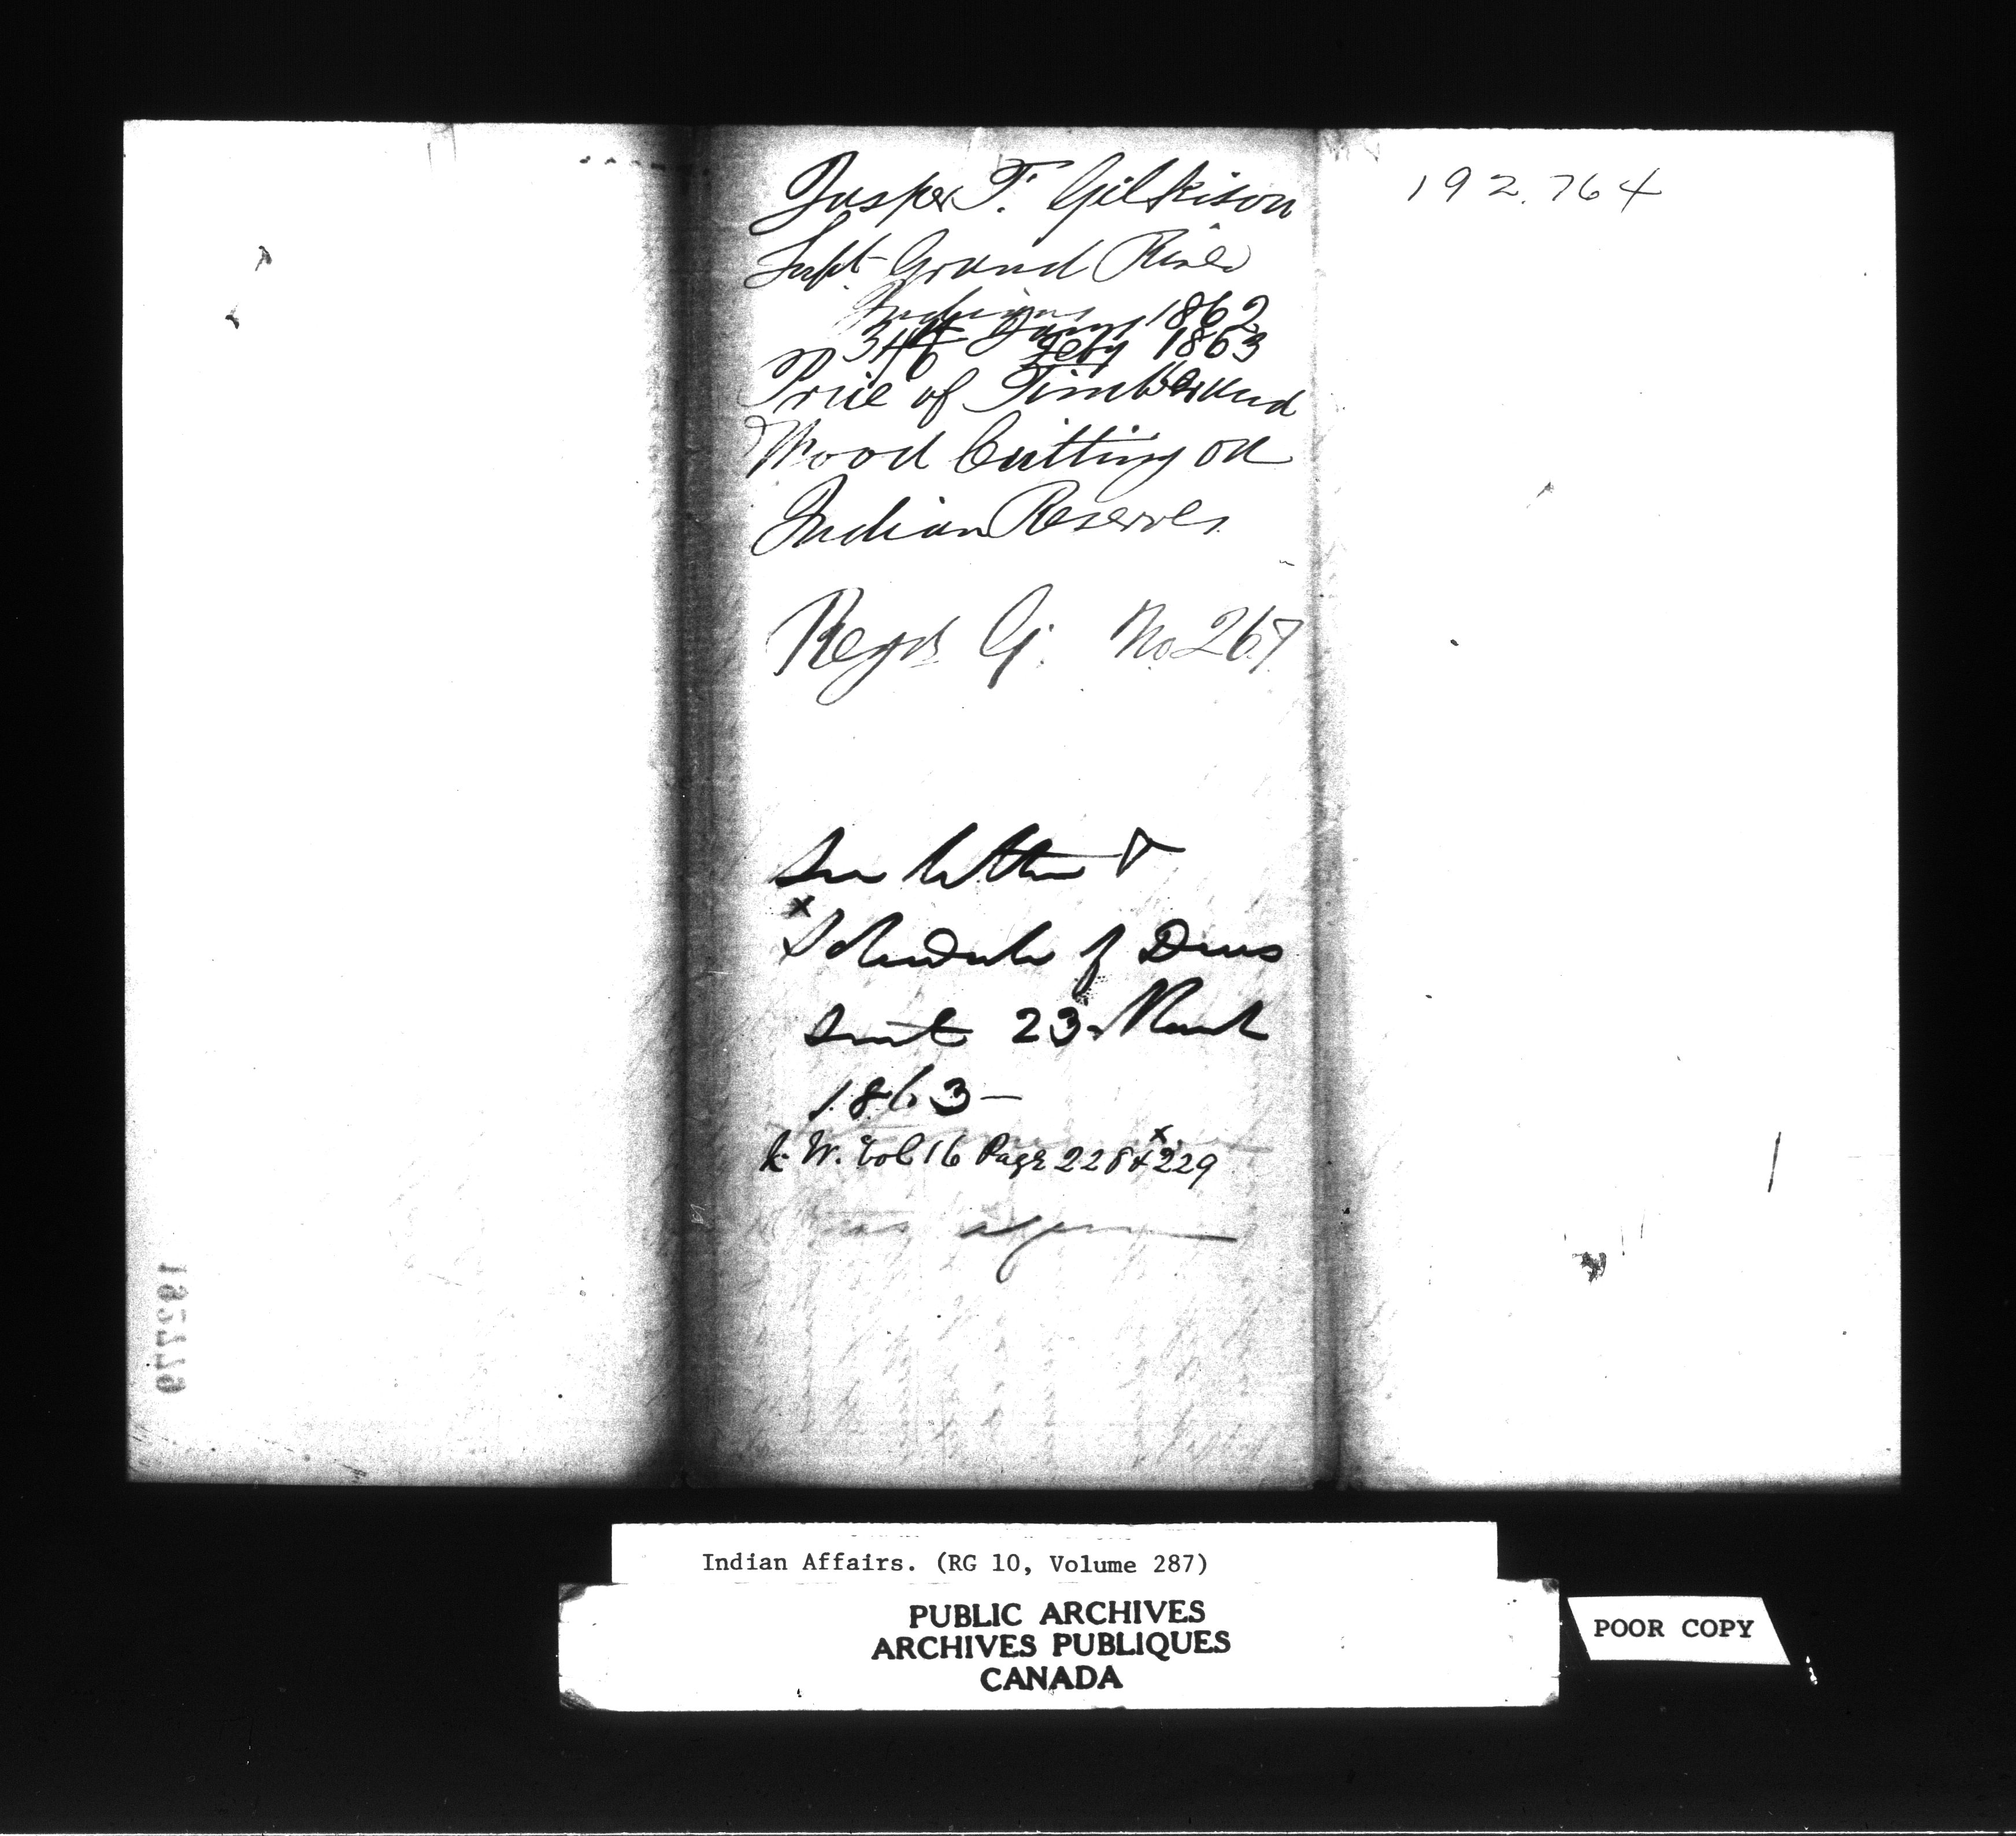 Jasper T. Gilkison
Supt Grand River
Indians
31st Jany 1862
6 Feby 1863
Price of Timber and
Wood Cutting on
Indian Reserves
Regd G. No 267
192.764
See letter &
x Schedule of Dues
sent 23 March
1863 -
L. W. Vol 16 Page 228 & x 229
Indian Affairs. (RG 10, Volume 287)
PUBLIC ARCHIVES
ARCHIVES PUBLIQUES
CANADA
POOR COPY